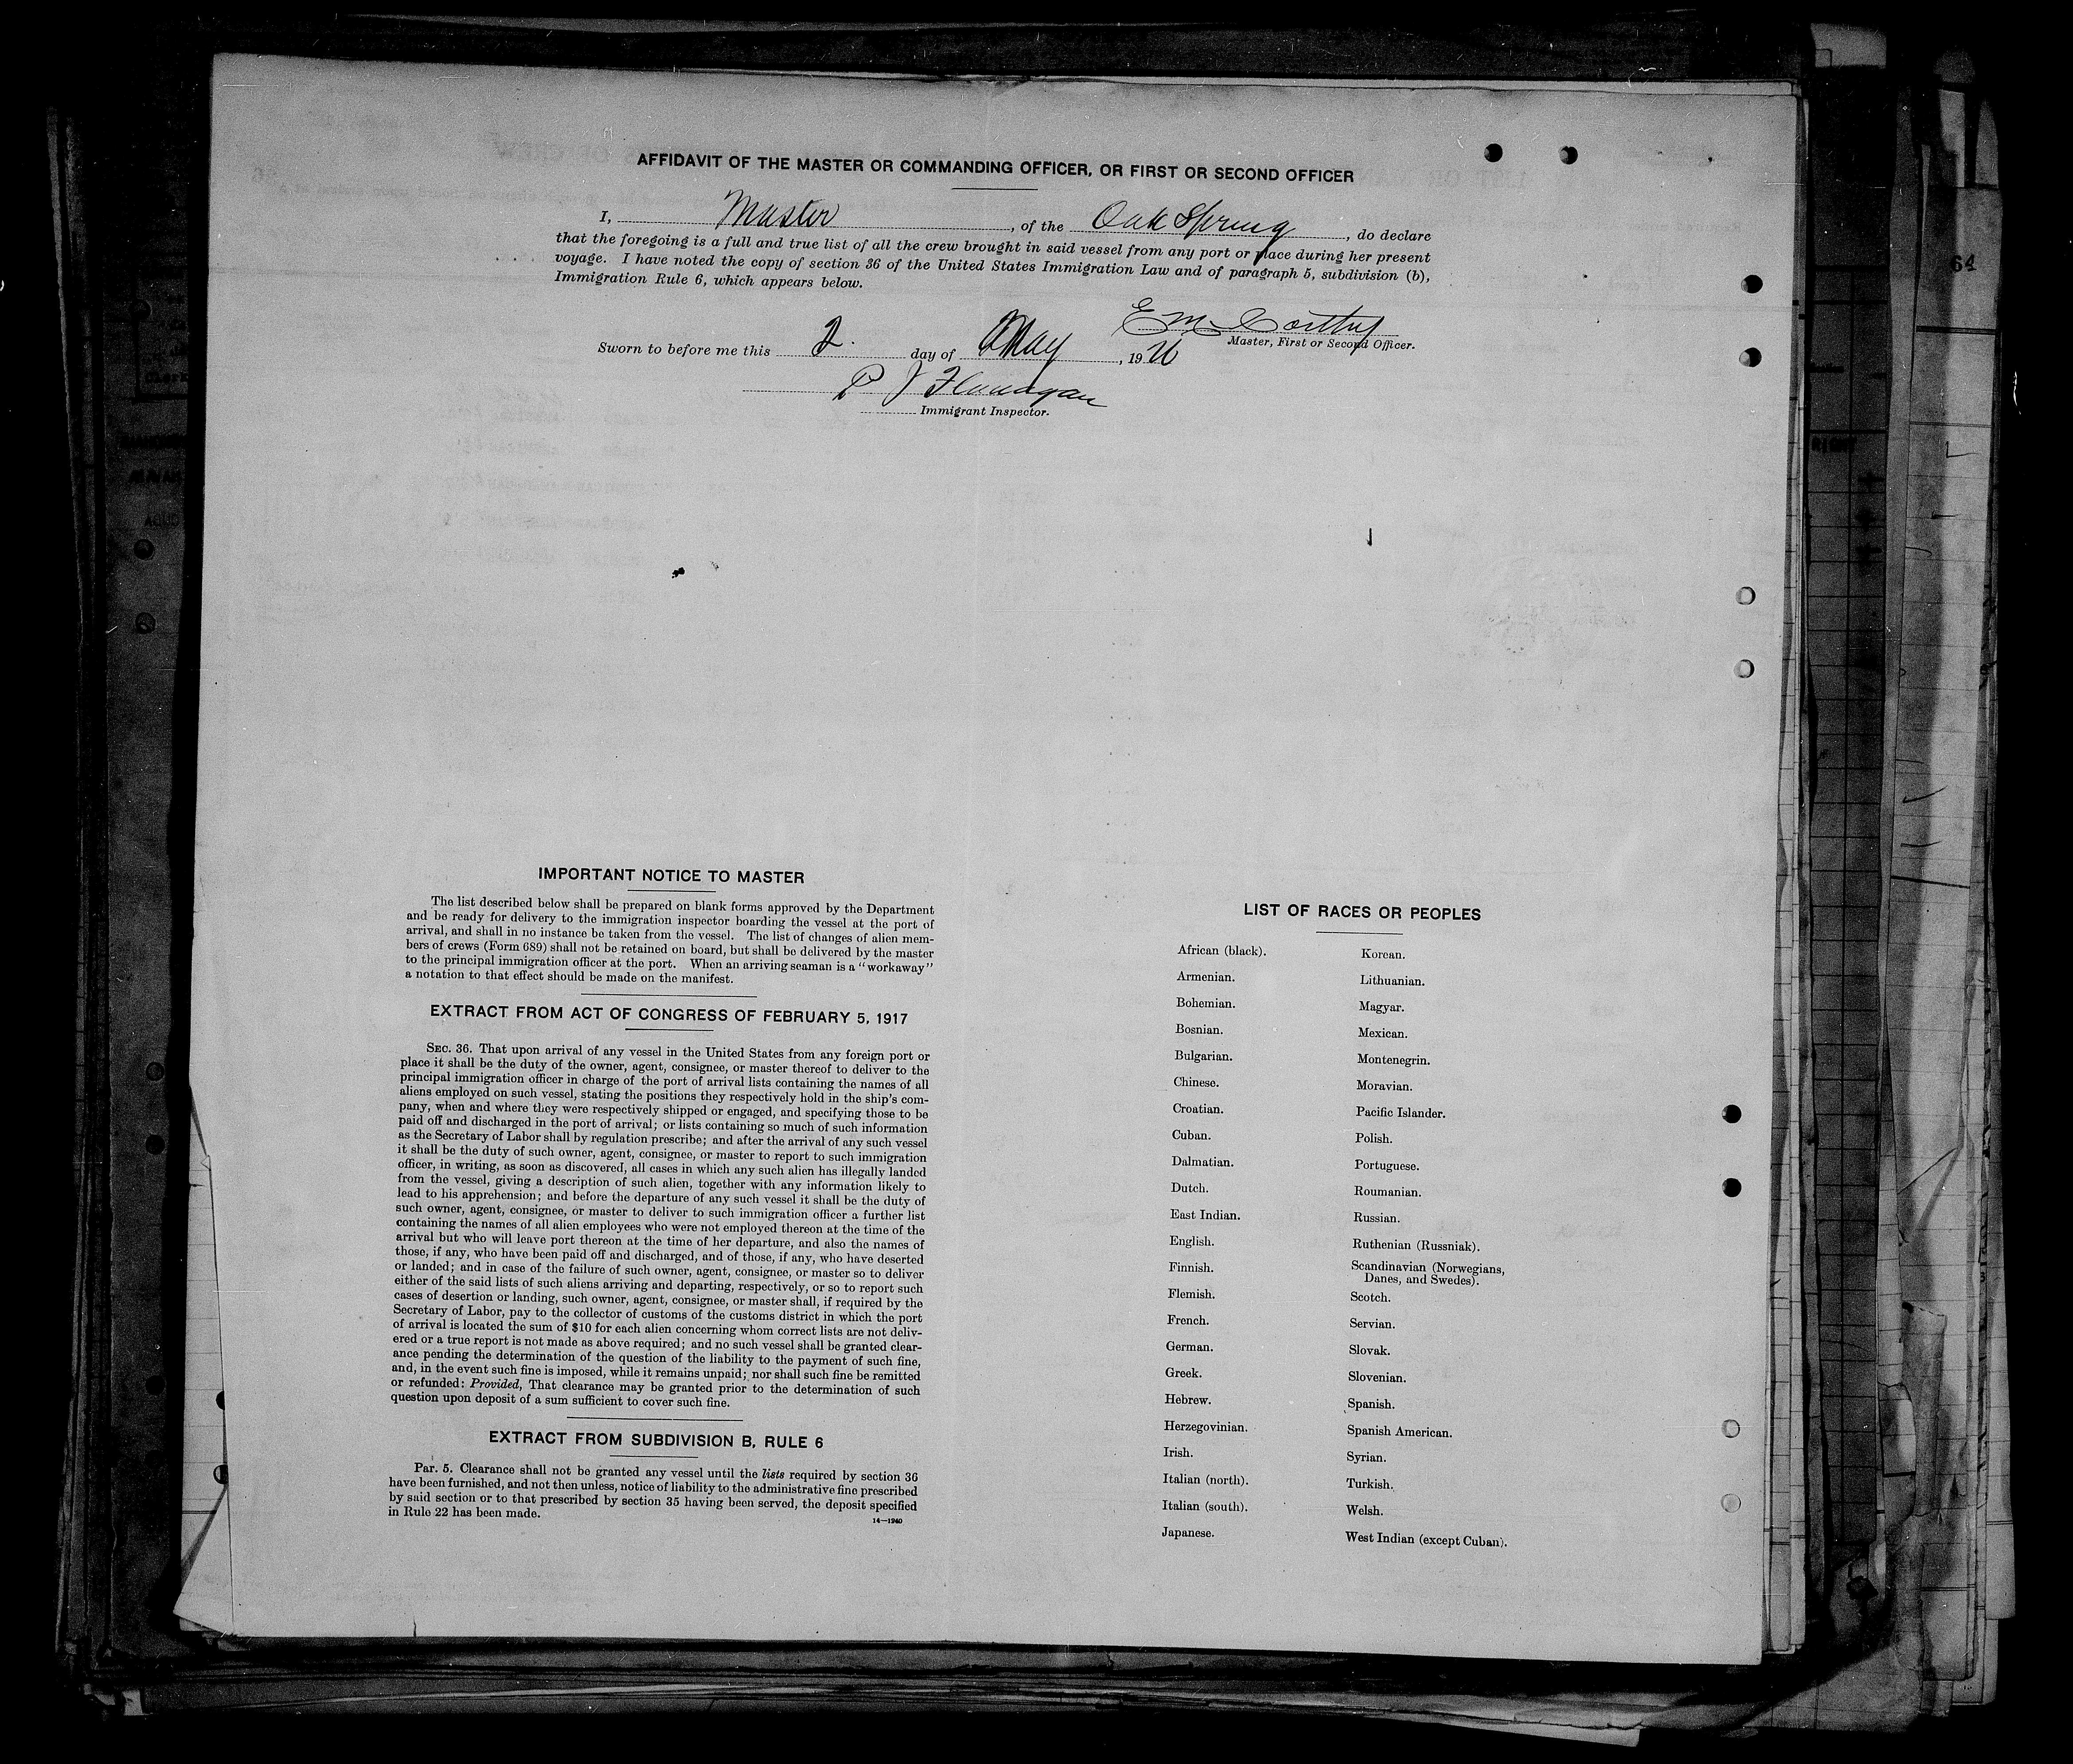 AFFIDAVIT OF THE MASTER OR COMMANDING OFFICER, OR FIRST OR SECOND OFFICER
I, Master, of the Oak Spring, do declare
that the foregoing is a full and true list of all the crew brought in said vessel from any port or place during her present
voyage. I have noted the copy of section 36 of the United States Immigration Law and of paragraph 5, subdivision (b),
Immigration Rule 6, which appears below.
E McCarthy
Master, First or Second Officer.
Sworn to before me this 2. day of May, 19
P J Flanagan
Immigrant Inspector.
IMPORTANT NOTICE TO MASTER
The list described below shall be prepared on blank forms approved by the Department
and be ready for delivery to the immigration inspector boarding the vessel at the port of
arrival, and shall in no instance be taken from the vessel. The list of changes of alien mem-
bers of crews (Form 689) shall not be retained on board, but shall be delivered by the master
to the principal immigration officer at the port. When an arriving seaman is a "workaway"
a notation to that effect should be made on the manifest.
EXTRACT FROM ACT OF CONGRESS OF FEBRUARY 5, 1917
SEC. 36. That upon arrival of any vessel in the United States from any foreign port or
place it shall be the duty of the owner, agent, consignee, or master thereof to deliver to the
principal immigration officer in charge of the port of arrival lists containing the names of all
aliens employed on such vessel, stating the positions they respectively hold in the ship's com-
pany, when and where they were respectively shipped or engaged, and specifying those to be
paid off and discharged in the port of arrival; or lists containing so much of such information
as the Secretary of Labor shall by regulation prescribe; and after the arrival of any such vessel
it shall be the duty of such owner, agent, consignee, or master to report to such immigration
officer, in writing, as soon as discovered, all cases in which any such alien has illegally landed
from the vessel, giving a description of such alien, together with any information likely to
lead to his apprehension; and before the departure of any such vessel it shall be the duty of
such owner, agent, consignee, or master to deliver to such immigration officer a further list
containing the names of all alien employees who were not employed thereon at the time of the
arrival but who will leave port thereon at the time of her departure, and also the names of
those, if any, who have been paid off and discharged, and of those, if any, who have deserted
or landed; and in case of the failure of such owner, agent, consignee, or master so to deliver
either of the said lists of such aliens arriving and departing, respectively, or so to report such
cases of desertion or landing, such owner, agent, consignee, or master shall, if required by the
Secretary of Labor, pay to the collector of customs of the customs district in which the port
of arrival is located the sum of $10 for each alien concerning whom correct lists are not deliv-
ered or a true report is not made as above required; and no such vessel shall be granted clear-
ance pending the determination of the question of the liability to the payment of such fine,
and, in the event such fine is imposed, while it remains unpaid; nor shall such fine be remitted
or refunded: Provided, That clearance may be granted prior to the determination of such
question upon deposit of a sum sufficient to cover such fine.
EXTRACT FROM SUBDIVISION B, RULE 6
Par. 5. Clearance shall not be granted any vessel until the lists required by section 36
have been furnished, and not then unless, notice of liability to the administrative fine prescribed
by said section or to that prescribed by section 35 having been served, the deposit specified
in Rule 22 has been made.
14—1240
LIST OF RACES OR PEOPLES
African (black).
Armenian.
Bohemian.
Bosnian.
Bulgarian.
Chinese.
Croatian.
Cuban.
Dalmatian.
Dutch.
East Indian.
English.
Finnish.
Flemish.
French.
German.
Greek.
Hebrew.
Herzegovinian.
Irish.
Italian (north).
Italian (south).
Japanese.
Korean.
Lithuanian.
Magyar.
Mexican.
Montenegrin.
Moravian.
Pacific Islander.
Polish.
Portuguese.
Roumanian.
Russian.
Ruthenian (Russniak).
Scandinavian (Norwegians,
Danes, and Swedes).
Scotch.
Servian.
Slovak.
Slovenian.
Spanish.
Spanish American.
Syrian.
Turkish.
Welsh.
West Indian (except Cuban).
64